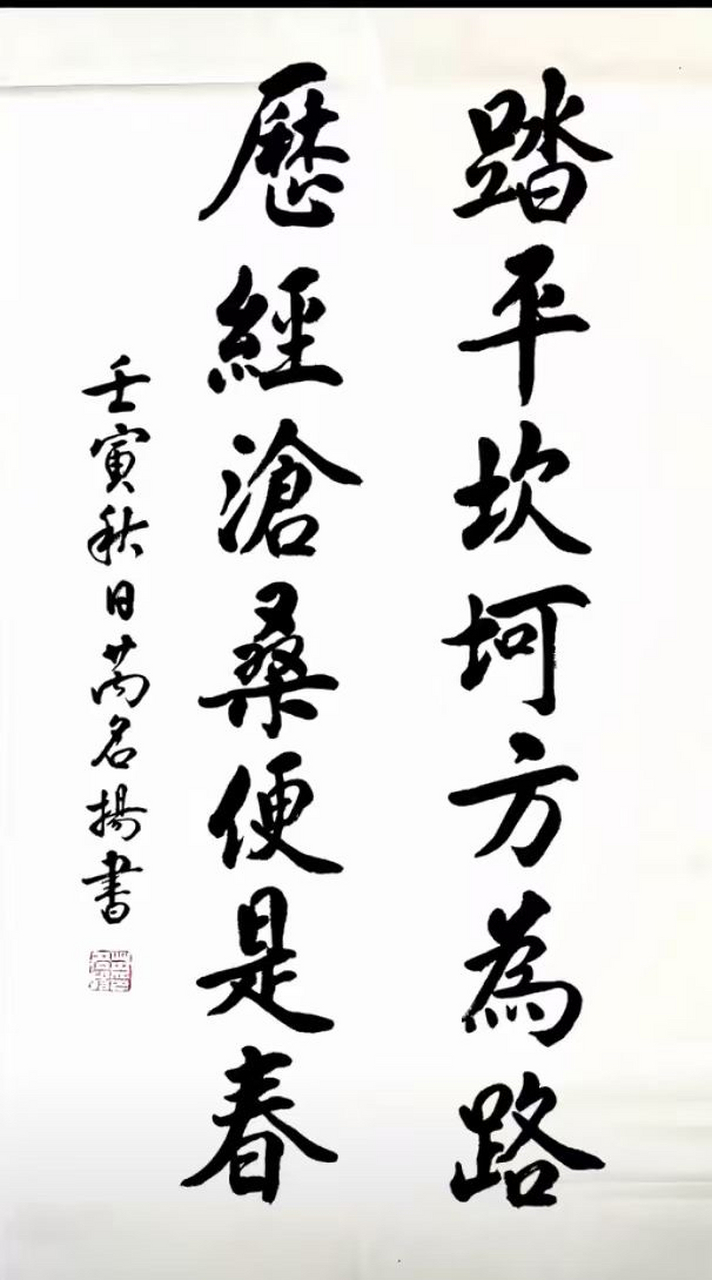 踏平坎坷方為路
歷經滄桑便是春
壬寅秋日芮名揚書